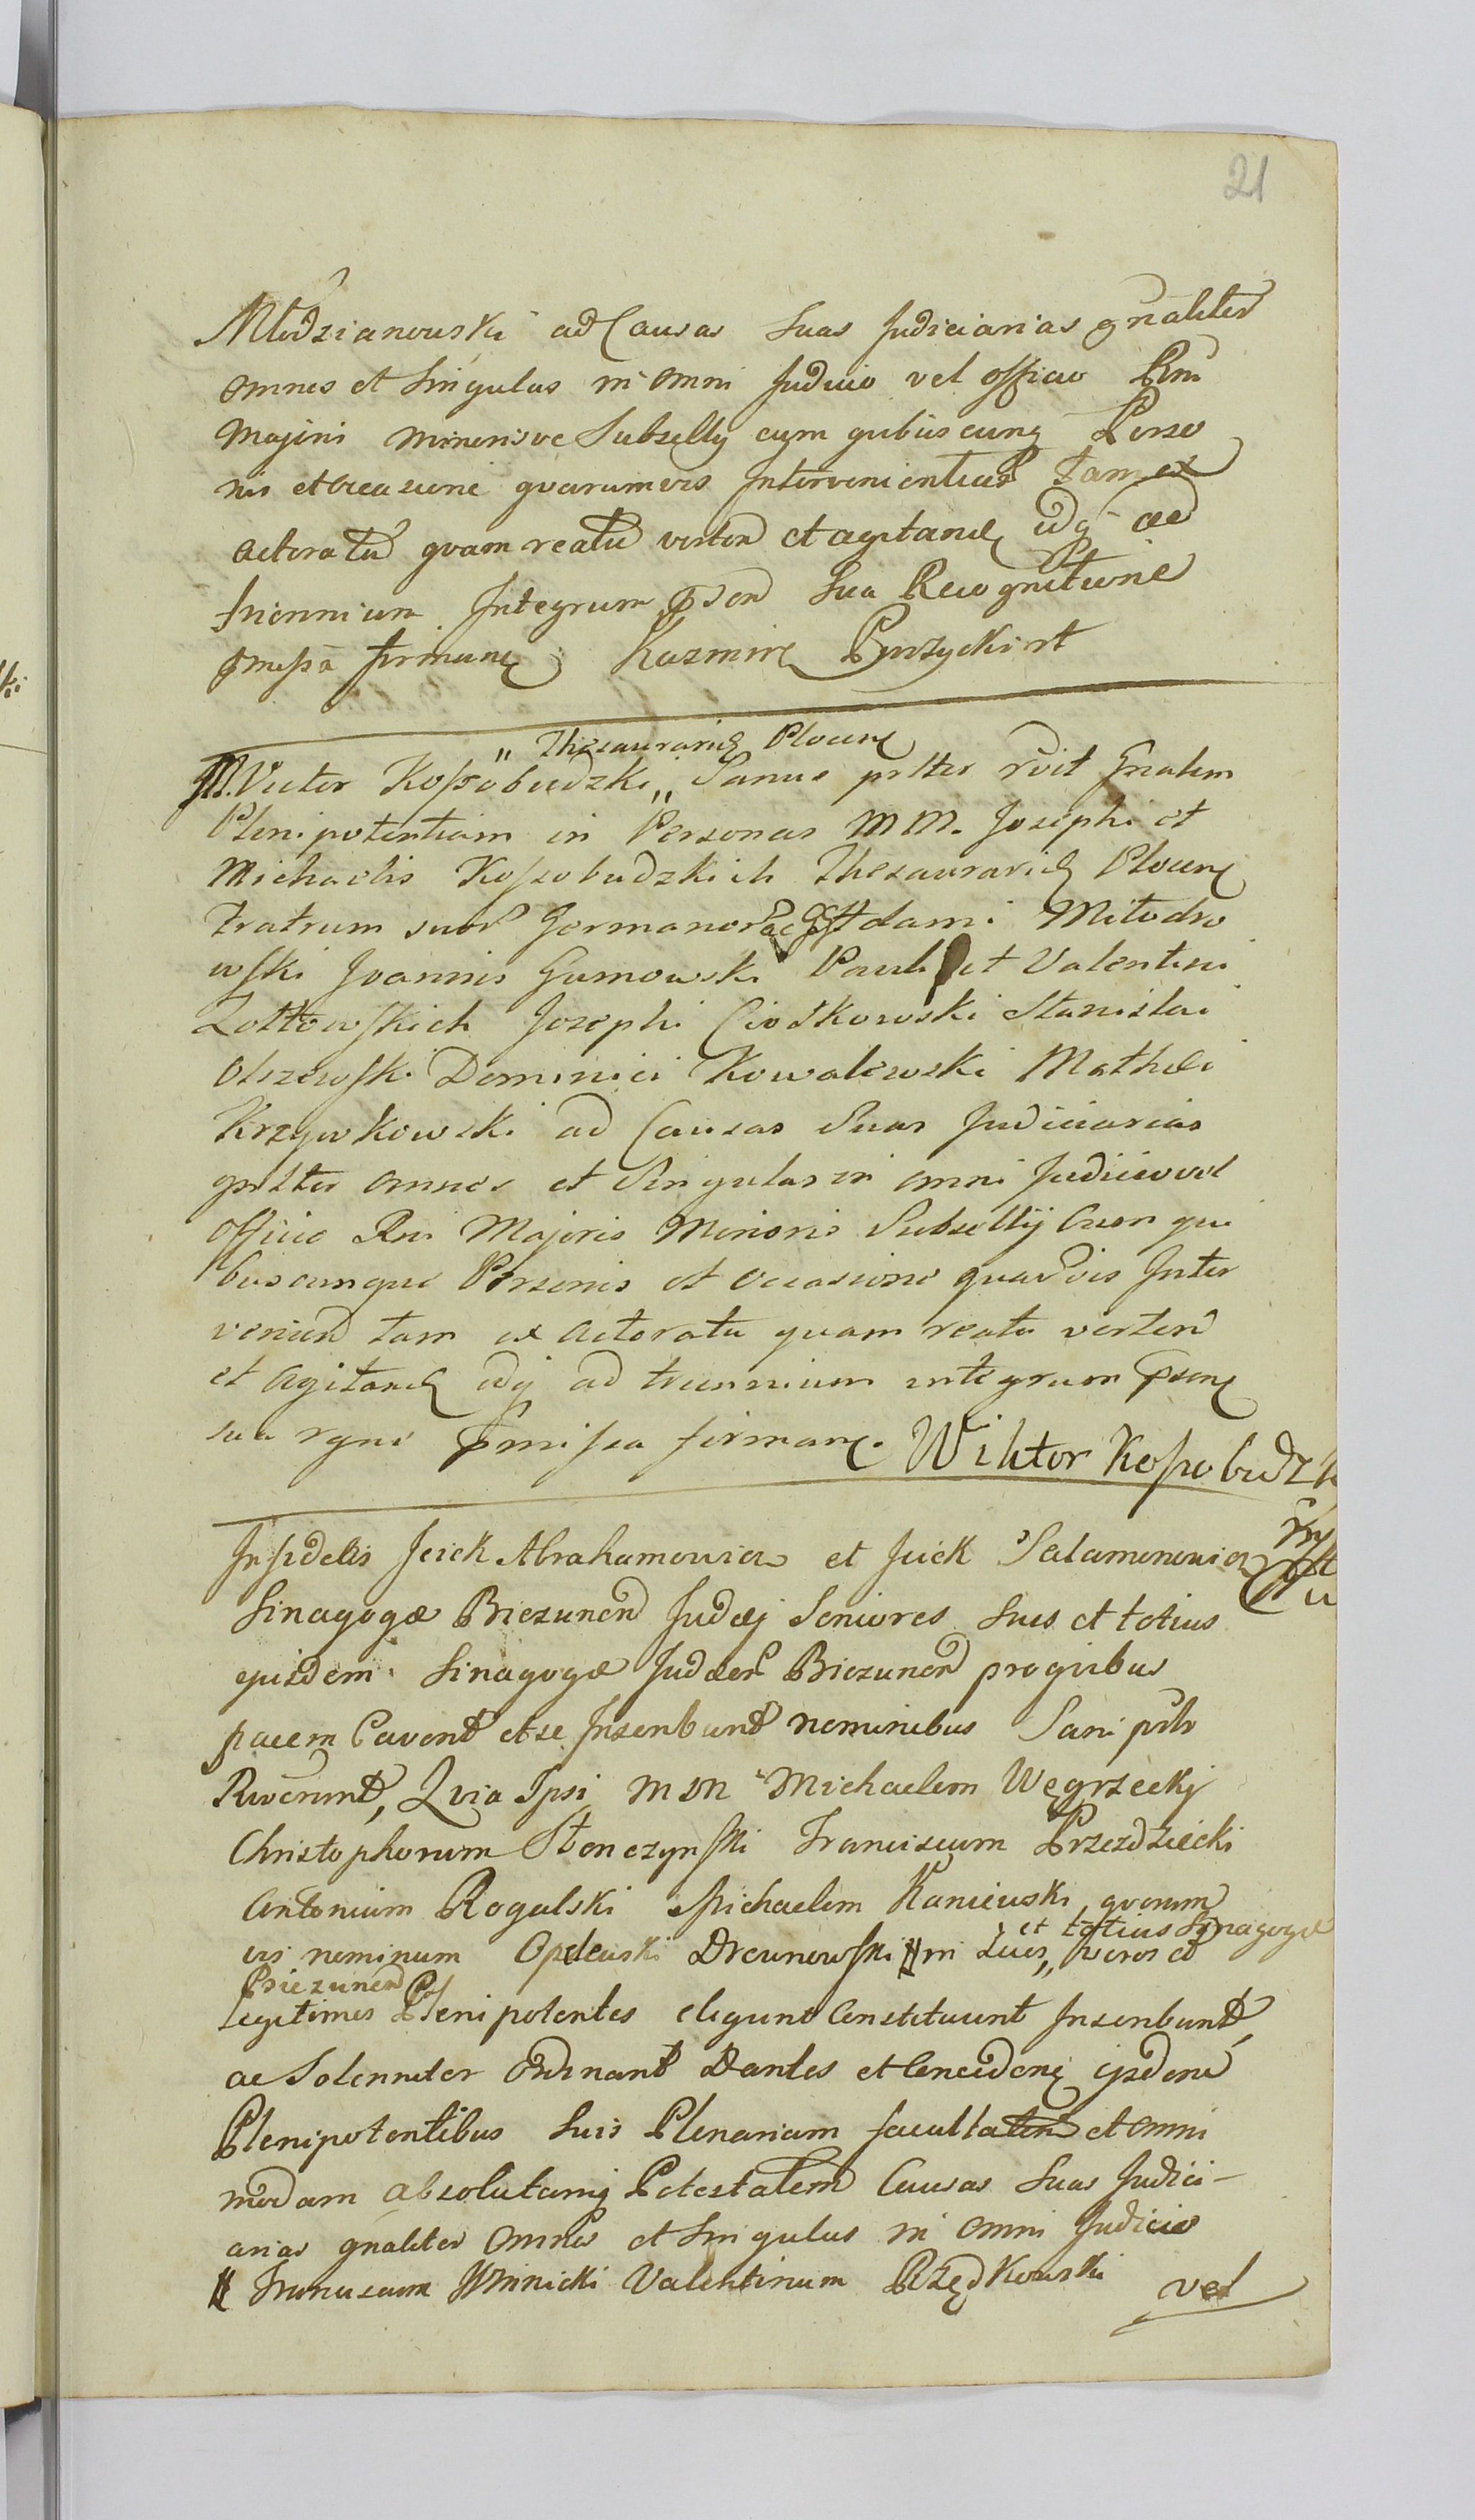 21
Młodzianowski ad Causas Suas Judiciarias gnaliter
omnes et Singulas in omni Judicio vel officio Rni
Majoris Minorisve Subsellij cum quibuscunq Perso
nis et occasione quarumvis Intervenientiar Tam ex
actoratu quam reatu verten et agitand idq ad
triennium Integrum psen Sua Recognitione
pmissa firmanq Kazmirz Pprzyckirt
M. Victor Kossobudzki „ Thesaurarid Plocen „ Sanus prtter rvit Gnalem
Plenipotentiam in Personas MM. Josephi et
Michaelis Kossobudzkich Thesaurarid Plocen
Fratrum suor Germanor ac GG Adami Miłodro
wski Joannis Gumowski Pauli et Valentini
Zołtowskich Josephi Ciołkowski Stanislai
Olszewski Dominici Kowalewski Mathei
Krzywkowski ad Causas Suas Judiciarias
gnltter omnes et Singulas in omni Judicio vel
officio Rni Majoris Minoris Subsellij Cum qui
buscunque Personis et occasione quarvis Inter
venien tam ex actoratu quam reatu verten
et Agitand idq ad triennium integrum psenq
sua rgne pmissa firmanq. Wiktor Kossobudzk
Infidelis Jcick Abrahamowicz et Jcick Salamonowicz
Sinagogæ Biezunen Judæj Seniores Suis et totius
ejusdem Sinagogæ Judæor Biezunen pro quibus
pacem Cavent et se Inscribunt nominibus Sani prtr
Rcverunt, Qvia Ipsi MM Michaelem Węgrzeckij
Christophorum Stenczynski Franciscum Przezdziecki
Antonium Rogulski Michaelem Kaniewski, qvorum
vis nominum Opalewski Drewnowski # in Suos „ et totius Synagogæ
Biezunen „ veros et
Legitimos Plenipotentes eligunt Constituunt Inscribunt,
ac Solenniter Ordinant Dantes et Concedenq ijsdem
Plenipotentibus Suis Plenariam facultatem et omni
modam absolutamq Potestatem Causas Suas Judici-
arias gnaliter Omnes et Singulas in omni Judicio
# Franciscum Winnicki Valentinum Rzędkowski vel